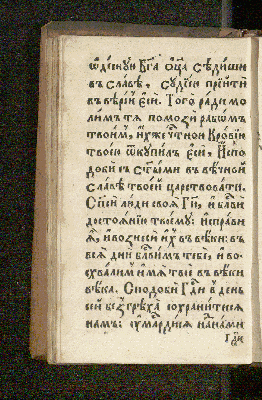 ѡ҆деснꙋ́ю бг҃а ѻ҆ц҃а̀ сѣди́ши
въ сла́вѣ, сꙋдїе́ю прїитѝ
въ вѣ́рїи є҆сѝ. Того̀ ра́ди мо
лим тѧ помозѝ рабѡ́мъ
твои̑мъ, и҆́хже чⷭ҇тно́ю кро́вїю
твое́ю ѡ҆кꙋпи́лъ є҆сѝ. И҆ спо
до́би съ ст҃ы́ми въ вѣ́чнѣй
сла́вѣ твое́й ца́рствовати.
Сп҃сѝ лю́ди своѧ̀ гдⷭ҇и, и҆ бл҃вѝ
достоѧ́нїе твоѐ: и҆ испра́ви
ѧ҆̀, и҆ вознесѝ и҆́хъ въ вѣ́ки: въ
всѧ̑ дни бл҃ви́мъ тебѐ, и҆ во
схва́лим и҆́мѧ твоѐ въ вѣ́ки
вѣ́ка. Сподо́би гдⷭ҇и в де́нь
се́й без̾ грѣха̀ сохрани́тисѧ
на́мъ: оу҆мл҃рдисѧ на́ на́ми
гдⷭ҇и